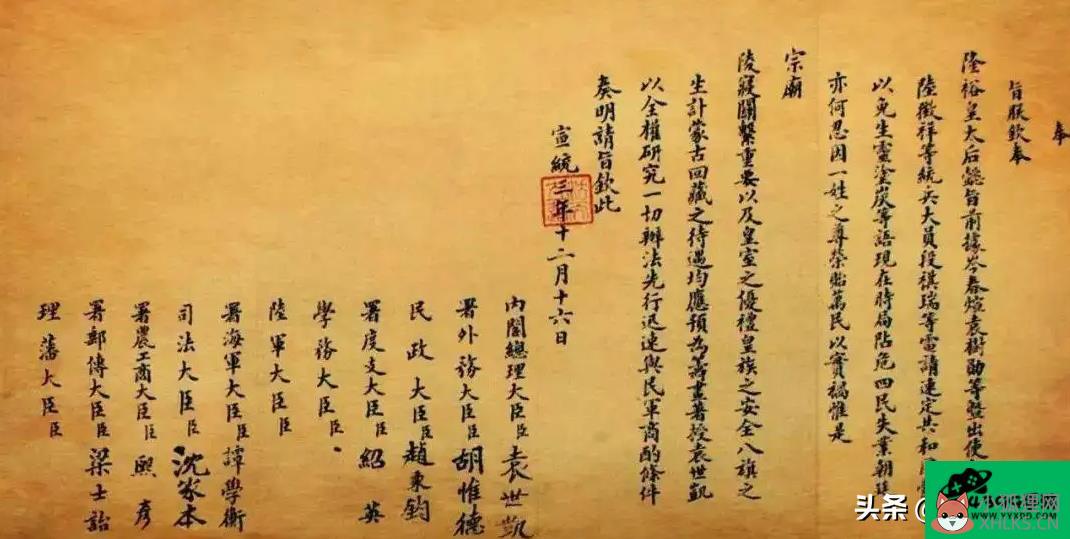 奉
旨朕欽奉
隆裕皇太后懿旨前據岑春煊袁樹勛等暨出使
陸徵祥等統兵大員段祺瑞等電請速定共和
以免生靈塗炭等語現在時局阽危四民失業朝
亦何忍因一姓之尊榮貽萬民以實禍惟是
宗廟
陵寢關繫重要以及皇室之優禮皇族之安全八旗之
生計蒙古回藏之待遇均應預為籌畫著授袁世凱
以全權研究一切辦法先行迅速與民軍商酌條件
奏明請旨欽此
宣統三年十二月十六日
內閣總理大臣臣袁世凱
署外務大臣臣胡惟德
民政大臣臣趙秉鈞
署度支大臣臣紹英
學務大臣臣
陸軍大臣臣
署海軍大臣臣譚學衡
司法大臣臣沈家本
署農工商大臣臣熙彥
署郵傳大臣臣梁士詒
理藩大臣臣
头条 @
狐狸网
XHLKS.CN
WWW.YYXPD.COM